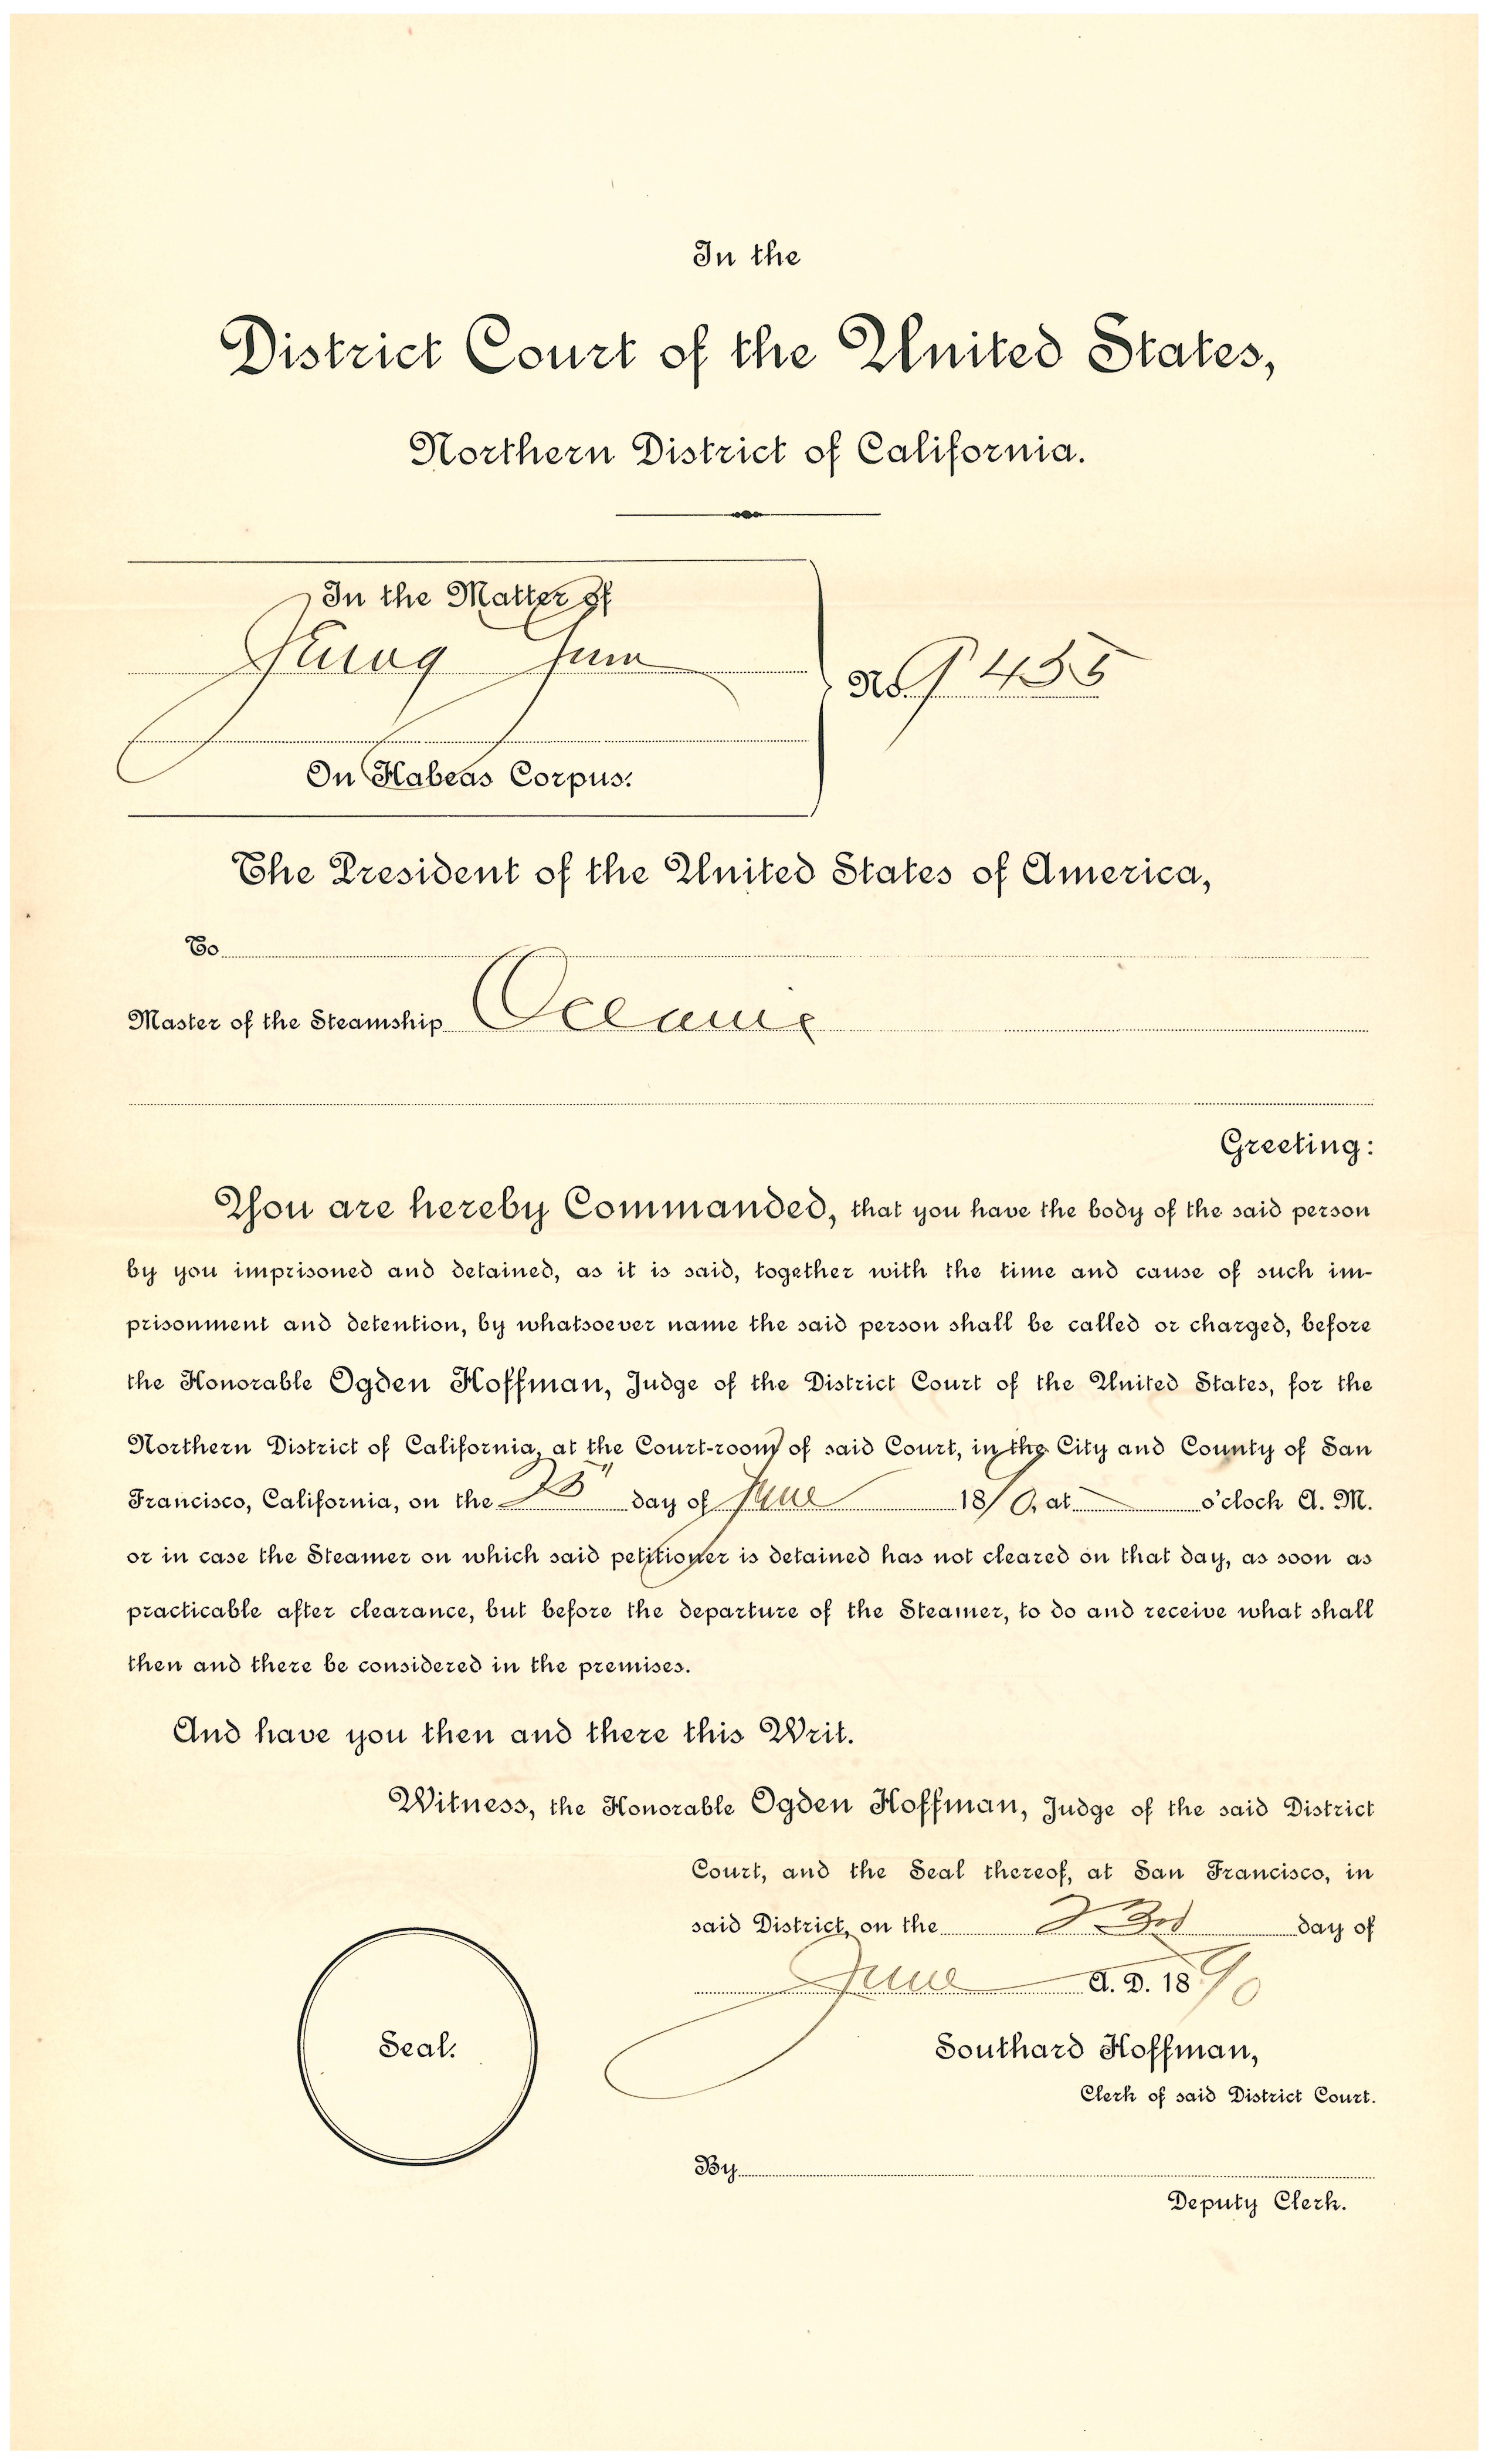 In the
District Court of the United States,
Northern District of California.
In the Matter of
Jeung Jum
On Habeas Corpus.
No. 9455
The President of the United States of America,
To
Master of the Steamship Oceanic
Greeting:
You are hereby Commanded, that you have the body of the said person
by you imprisoned and detained, as it is said, together with the time and cause of such im-
prisonment and detention, by whatsoever name the said person shall be called or charged, before
the Honorable Ogden Hoffman, Judge of the District Court of the United States, for the
Northern District of California, at the Court-room of said Court, in the City and County of San
Francisco, California, on the 25" day of June 1890, at o'clock A. M.
or in case the Steamer on which said petitioner is detained has not cleared on that day, as soon as
practicable after clearance, but before the departure of the Steamer, to do and receive what shall
then and there be considered in the premises.
And have you then and there this Writ.
Witness, the Honorable Ogden Hoffman, Judge of the said District
Court, and the Seal thereof, at San Francisco, in
said District, on the 23rd day of
June A. D. 1890
Seal.
Southard Hoffman,
Clerk of said District Court.
By
Deputy Clerk.